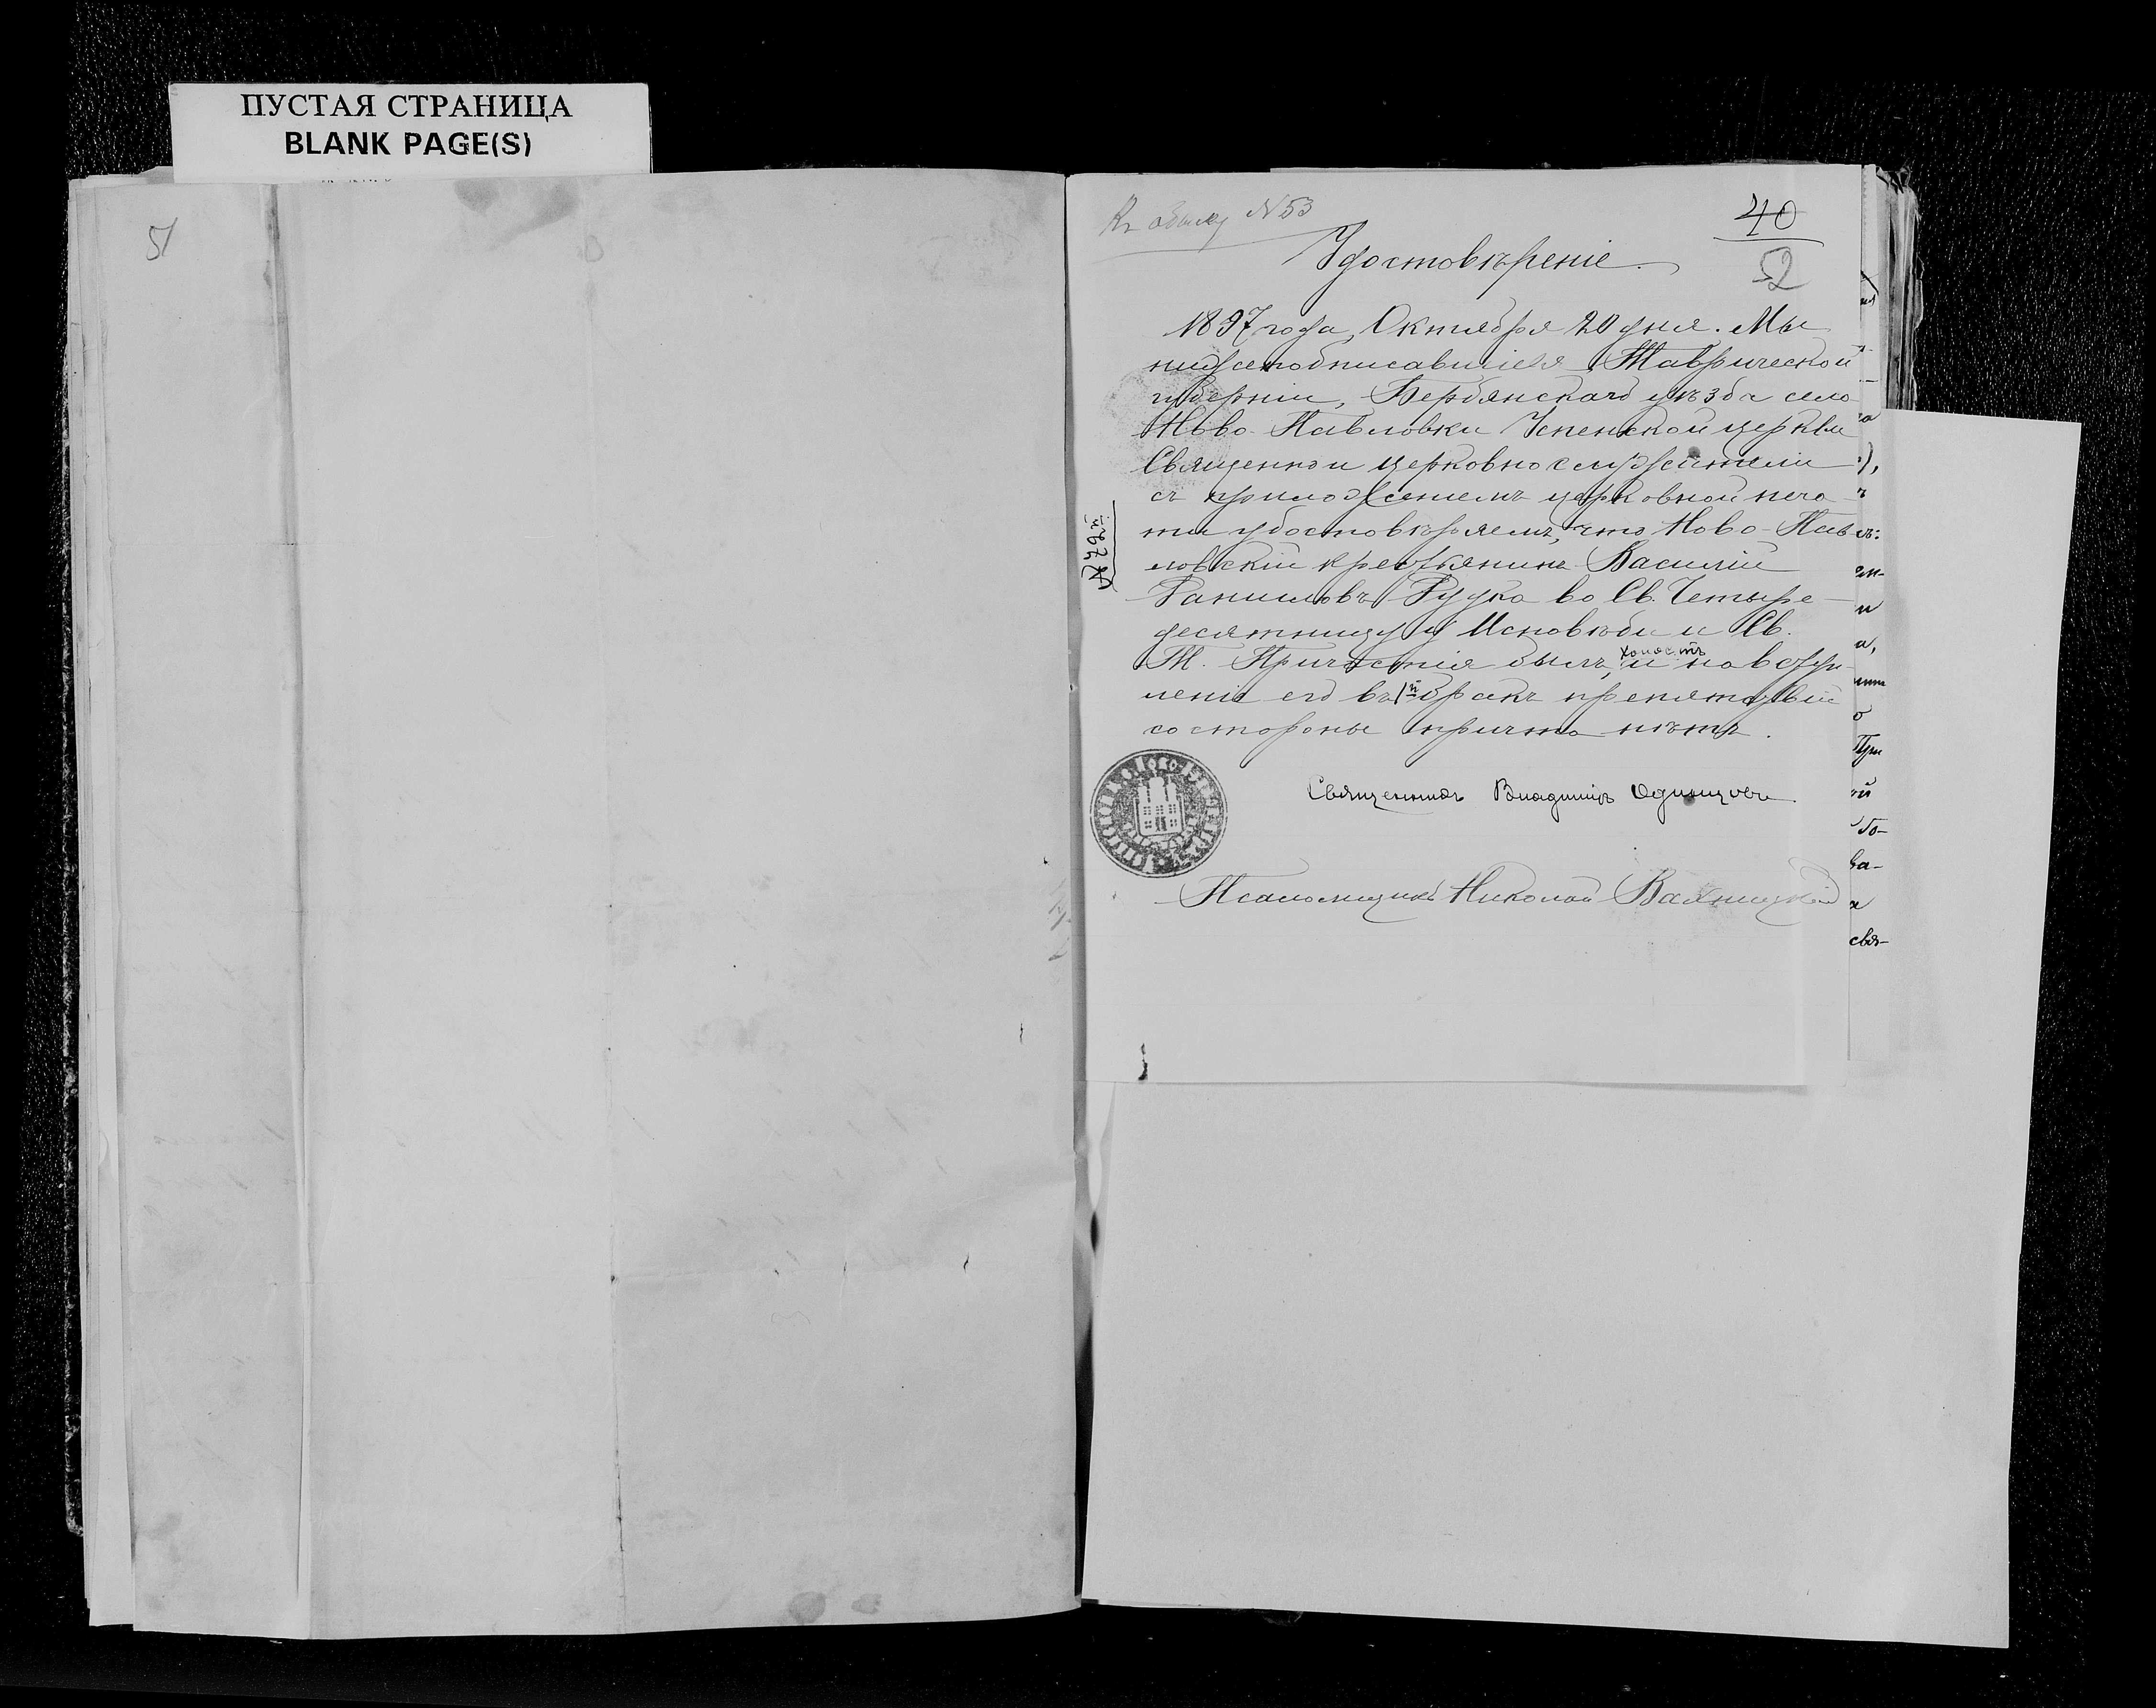 ПУСТАЯ СТРАНИЦА
BLANK PAGE(S)
51
Къ обыску №53
40
52
Удостовѣреніе.
1897 года, Октября 20 дня. Мы
нижеподписавшіеся Таврической
губерніи, Бердянскаго уѣзда села
Ново-Павловки Успенской церкви
Священно и церковнослужители
съ приложеніемъ церковной печа-
ти удостовѣряемъ, что Ново-Пав-
ловскій крестьянинъ Василій
Даниловъ Рудка во Св. Четыре-
десятницу у Исповѣди и Св.
Т. Причастія былъ, холостъ и на вступ-
леніе его въ 1й бракъ препятствій
со стороны причта нѣтъ.
Священникъ Владиміръ Одинцовъ
Псаломщикъ Николай